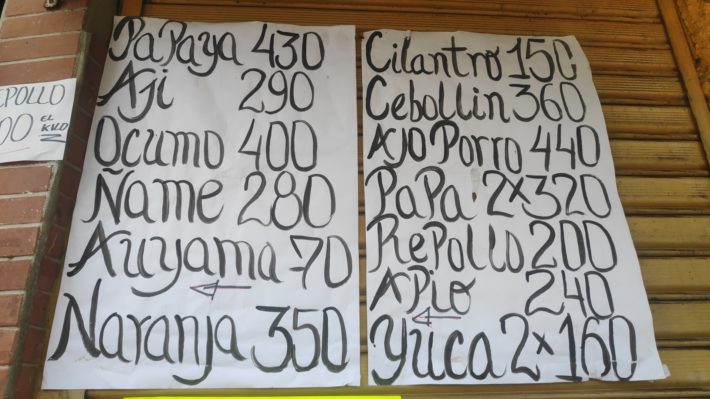 EPOLLO
00 EL KILO
PaPaya 430
Aji 290
Ocumo 400
Ñame 280
Auyama 70
Naranja 350
Cilantro 150
Cebollin 360
AJO Porro 440
PaPa 2x320
RePollo 200
APio 240
Yuca 2x160